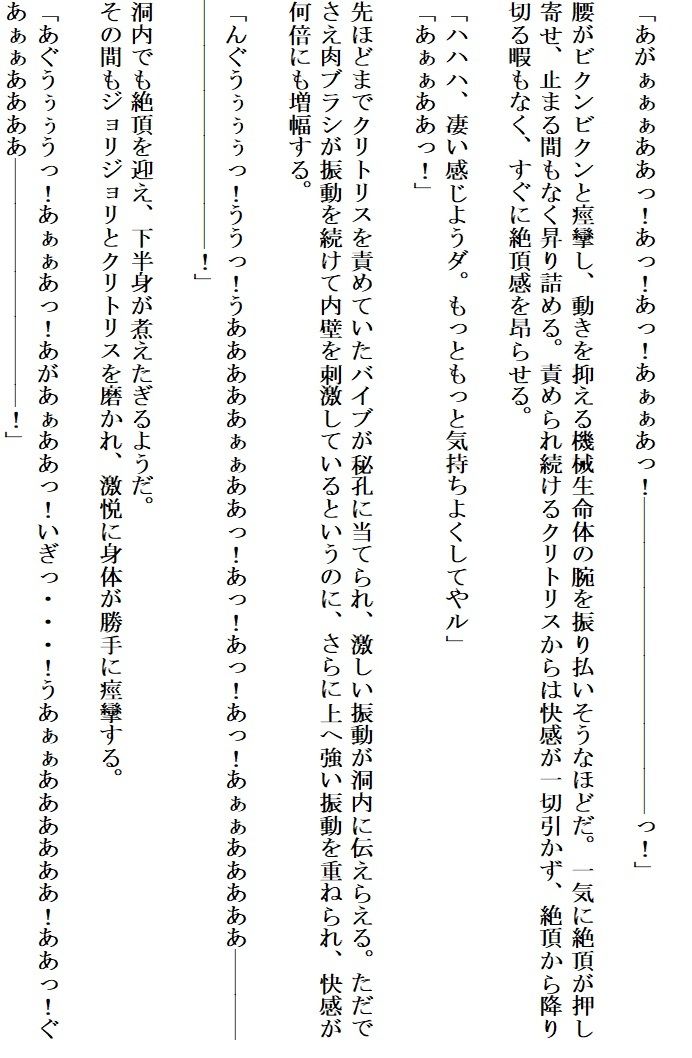 「あがぁぁぁああっ!あっ!あっ!あぁぁあっ!――――――――――っ!」
腰がビクンビクンと痙攣し、動きを抑える機械生命体の腕を振り払いそうなほどだ。一気に絶頂が押し
寄せ、止まる間もなく昇り詰める。責められ続けるクリトリスからは快感が一切引かず、絶頂から降り
切る暇もなく、すぐに絶頂感を昂らせる。
「ハハハ、凄い感じようダ。もっともっと気持ちよくしてやル」
「あぁぁああっ!」
先ほどまでクリトリスを責めていたバイブが秘孔に当てられ、激しい振動が洞内に伝えらえる。ただで
さえ肉ブラシが振動を続けて内壁を刺激しているというのに、さらに上へ強い振動を重ねられ、快感が
何倍にも増幅する。
「んぐうぅぅぅっ!ううっ!うああああああぁぁああっ!あっ!あっ!あっ!あぁぁああああああ―――
――――――――!」
洞内でも絶頂を迎え、下半身が煮えたぎるようだ。
その間もジョリジョリとクリトリスを磨かれ、激悦に身体が勝手に痙攣する。
「あぐうぅぅうっ!あぁぁあっ!あがあぁああっ!いぎっ・・・!うあぁぁああああああああ!ああっ!ぐ
あぁぁああああ――――――――!」